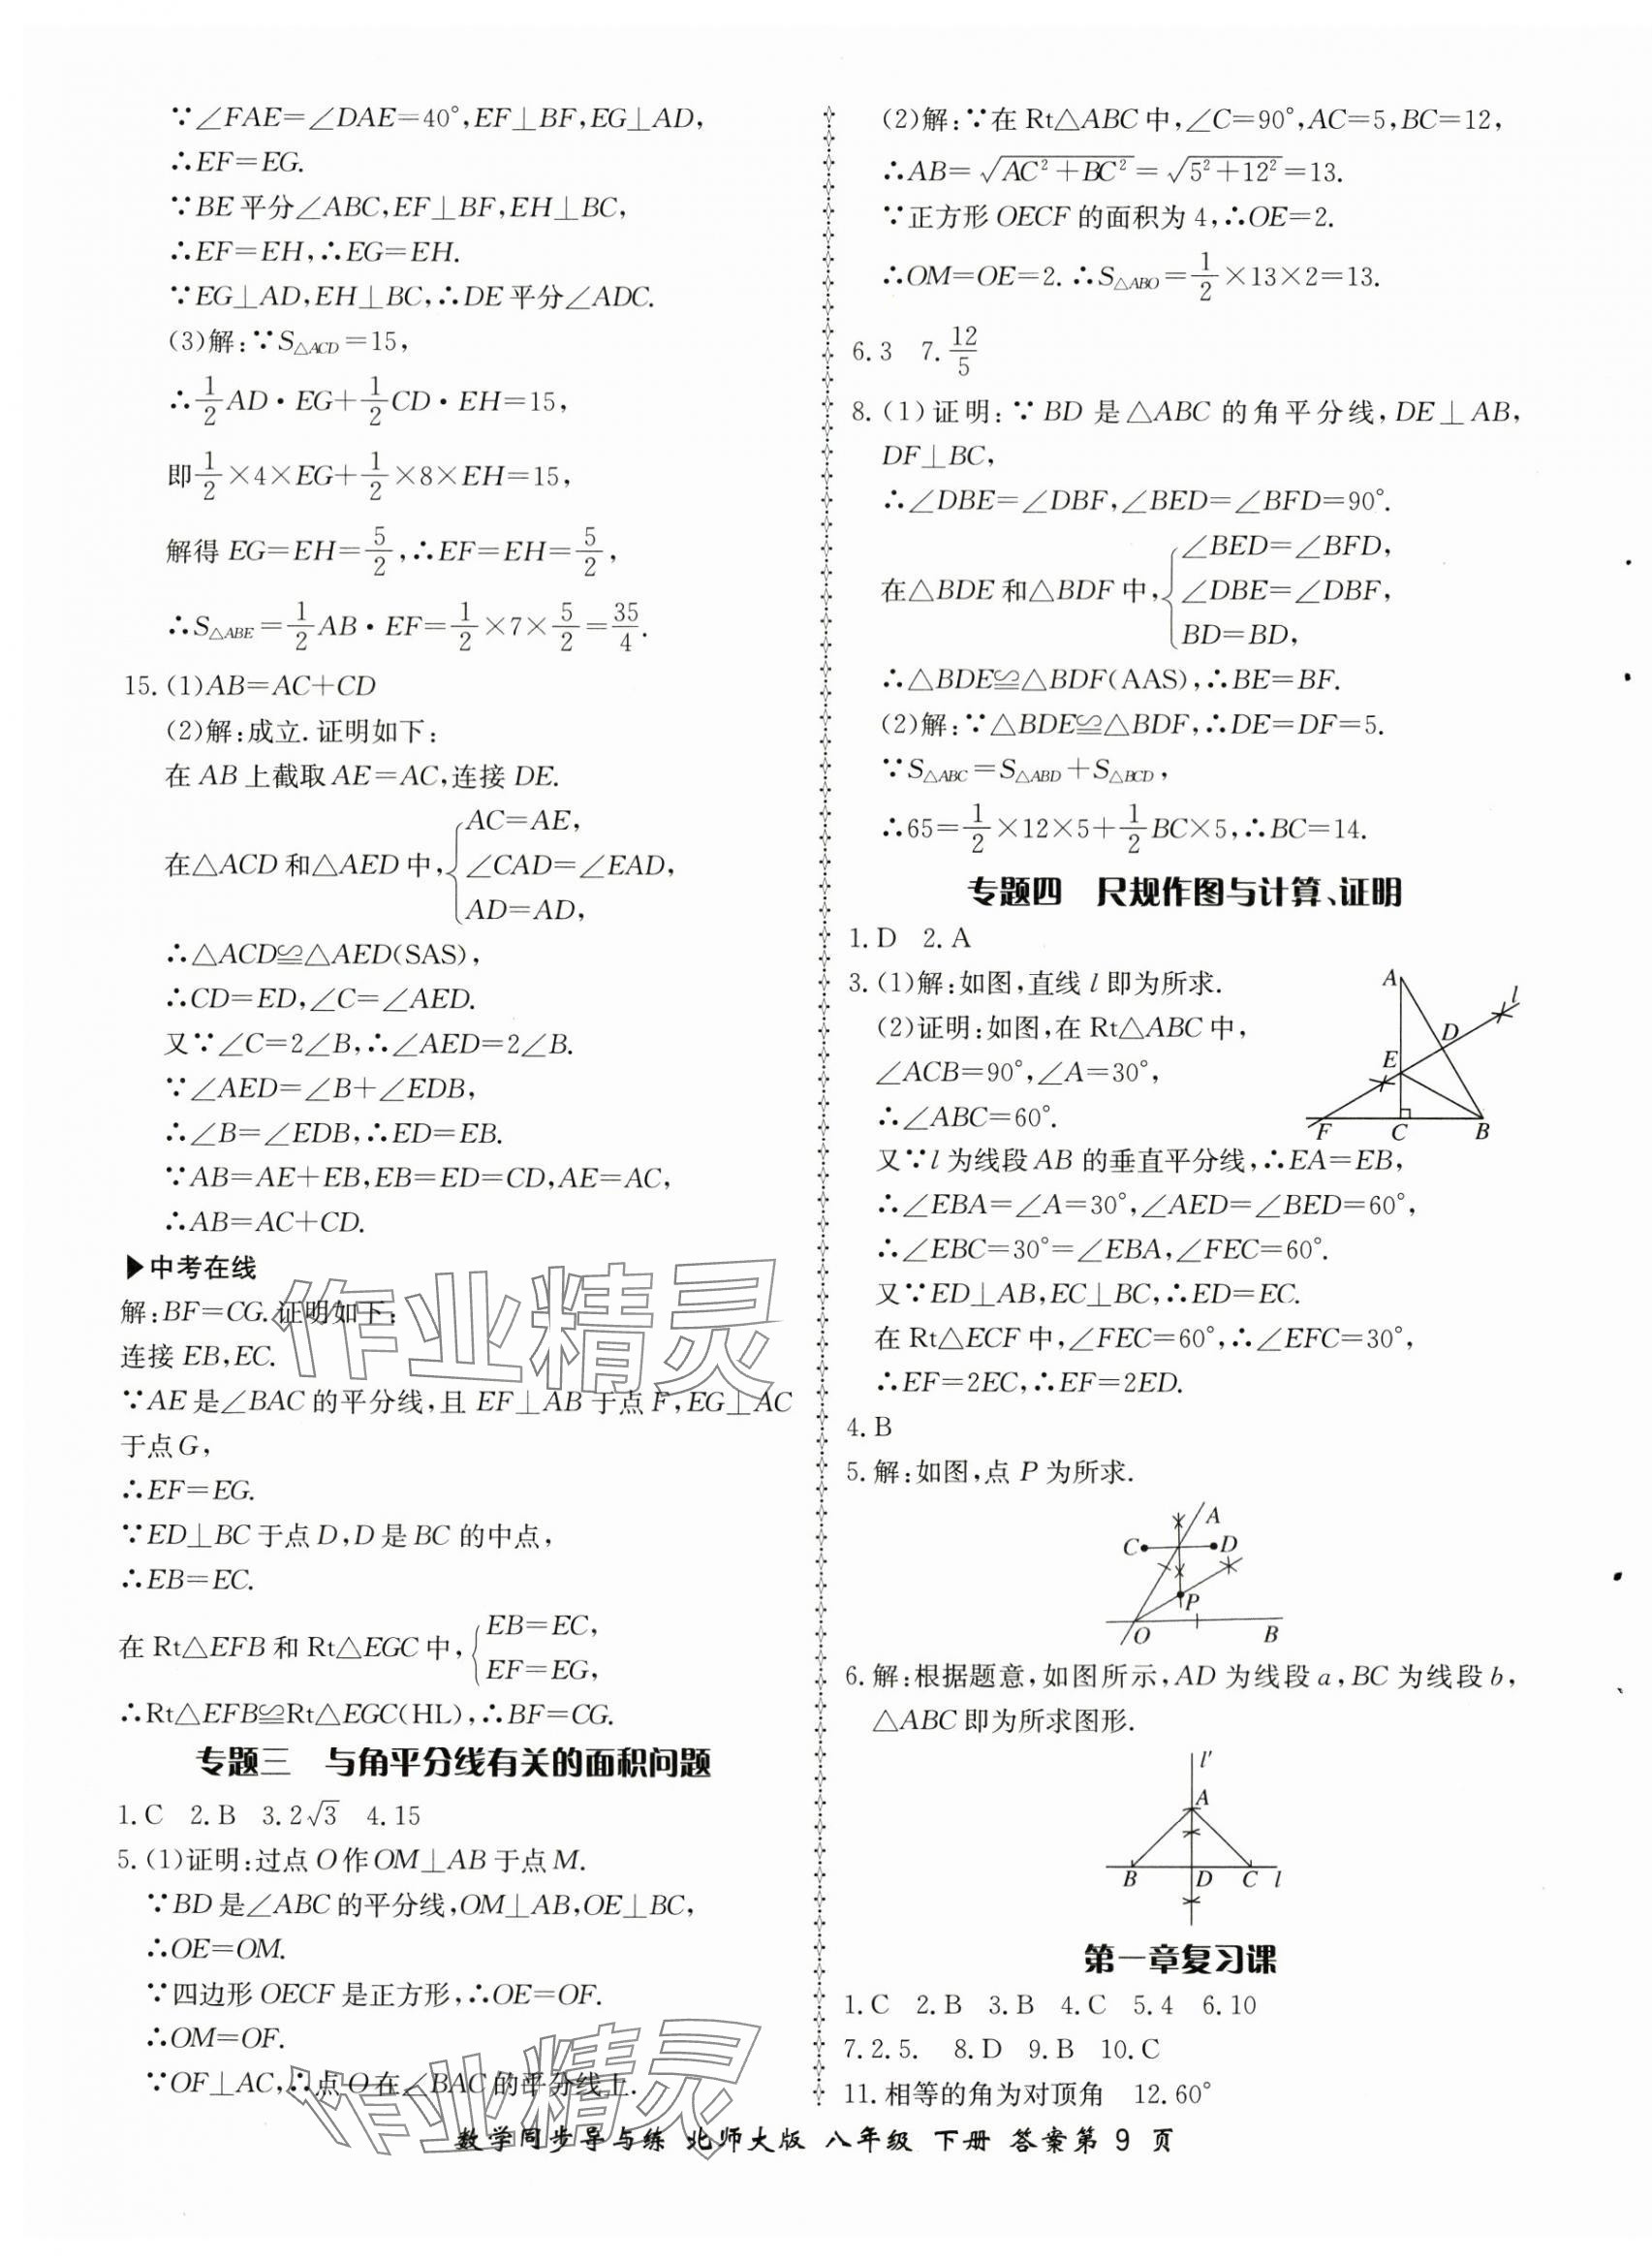 ∵∠FAE=∠DAE=40°,EF⊥BF,EG⊥AD,
∴EF=EG.
∵BE平分∠ABC,EF⊥BF,EH⊥BC,
∴EF=EH,∴EG=EH.
∵EG⊥AD,EH⊥BC,∴DE平分∠ADC.
(3)解:∵S△ACD=15,
∴1/2AD·EG+1/2CD·EH=15,
即1/2×4×EG+1/2×8×EH=15,
解得EG=EH=5/2,∴EF=EH=5/2,
∴S△ABE=1/2AB·EF=1/2×7×5/2=35/4.
15.(1)AB=AC+CD
(2)解:成立.证明如下:
在AB上截取AE=AC,连接DE.
在△ACD和△AED中,{AC=AE,
∠CAD=∠EAD,
AD=AD,
∴△ACD≌△AED(SAS),
∴CD=ED,∠C=∠AED.
又∵∠C=2∠B,∴∠AED=2∠B.
∵∠AED=∠B+∠EDB,
∴∠B=∠EDB,∴ED=EB.
∵AB=AE+EB,EB=ED=CD,AE=AC,
∴AB=AC+CD.
▶中考在线
解:BF=CG.证明如下:
连接EB,EC.
∵AE是∠BAC的平分线,且EF⊥AB于点F,EG⊥AC
于点G,
∴EF=EG.
∵ED⊥BC于点D,D是BC的中点,
∴EB=EC.
在Rt△EFB和Rt△EGC中,{EB=EC,
EF=EG,
∴Rt△EFB≌Rt△EGC(HL),∴BF=CG.
专题三 与角平分线有关的面积问题
1.C 2.B 3.2√3 4.15
5.(1)证明:过点O作OM⊥AB于点M.
∵BD是∠ABC的平分线,OM⊥AB,OE⊥BC,
∴OE=OM.
∵四边形OECF是正方形,∴OE=OF.
∴OM=OF.
∵OF⊥AC,∴点O在∠BAC的平分线上.
(2)解:∵在Rt△ABC中,∠C=90°,AC=5,BC=12,
∴AB=√(AC²+BC²)=√(5²+12²)=13.
∵正方形OECF的面积为4,∴OE=2.
∴OM=OE=2.∴S△ABO=1/2×13×2=13.
6.3 7.12/5
8.(1)证明:∵BD是△ABC的角平分线,DE⊥AB,
DF⊥BC,
∴∠DBE=∠DBF,∠BED=∠BFD=90°.
在△BDE和△BDF中,{∠BED=∠BFD,
∠DBE=∠DBF,
BD=BD,
∴△BDE≌△BDF(AAS),∴BE=BF.
(2)解:∵△BDE≌△BDF,∴DE=DF=5.
∵S△ABC=S△ABD+S△BCD,
∴65=1/2×12×5+1/2BC×5,∴BC=14.
专题四 尺规作图与计算、证明
1.D 2.A
3.(1)解:如图,直线l即为所求.
(2)证明:如图,在Rt△ABC中,
∠ACB=90°,∠A=30°,
∴∠ABC=60°.
A
l
D
E
F C B
又∵l为线段AB的垂直平分线,∴EA=EB,
∴∠EBA=∠A=30°,∠AED=∠BED=60°,
∴∠EBC=30°=∠EBA,∠FEC=60°.
又∵ED⊥AB,EC⊥BC,∴ED=EC.
在Rt△ECF中,∠FEC=60°,∴∠EFC=30°,
∴EF=2EC,∴EF=2ED.
4.B
5.解:如图,点P为所求.
A
C D
P
O B
6.解:根据题意,如图所示,AD为线段a,BC为线段b,
△ABC即为所求图形.
l′
A
B D C l
第一章复习课
1.C 2.B 3.B 4.C 5.4 6.10
7.2.5. 8.D 9.B 10.C
11.相等的角为对顶角 12.60°
数学同步导与练 北师大版 八年级 下册 答案第9页
作业精灵
作业精灵